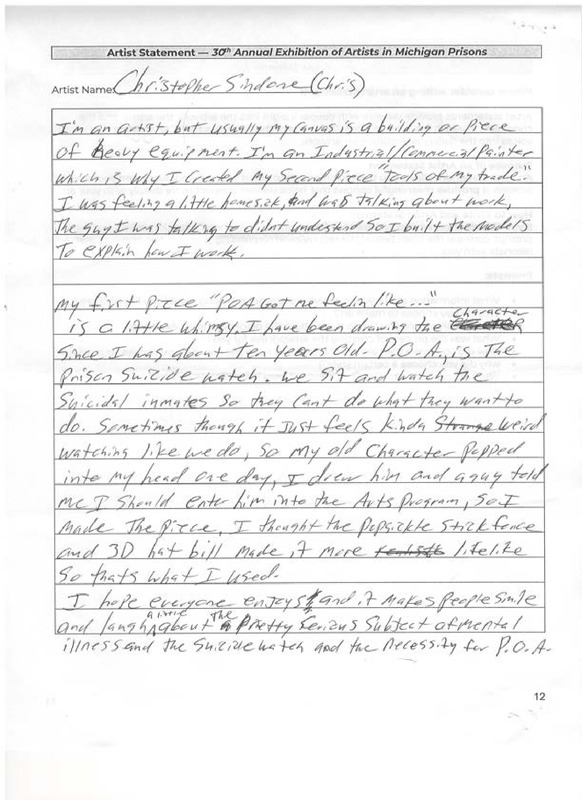 Artist Statement — 30th Annual Exhibition of Artists in Michigan Prisons
Artist Name: Christopher Sindone (Chris)
I'm an artist, but usually my canvas is a building or piece
of heavy equipment. I'm an Industrial/Commercial Painter
which is why I created my second piece "Tools of my trade."
I was feeling a little homesick, and was talking about work,
the guy I was talking to didnt understand so I built the models
To explain how I work.
my first piece "POA Got me feelin like..."
Character
is a little whimsy. I have been drawing the
since I was about ten years old. P.O.A., is The
prison suicide watch. we sit and watch the
suicidal inmates so they cant do what they want to
do. Sometimes though it Just feels kinda Strange weird
watching like we do, so my old Character popped
into my head one day, I drew him and a guy told
me I should enter him into the Arts Program, so I
made The piece, I thought the popsickle stick fence
and 3D hat bill made it more lifelike
so thats what I used.
I hope everyone enjoys it and it makes people smile
a little The
and laugh about pretty serious subject of mental
illness and the suicide watch and the necessity for P.O.A.
12